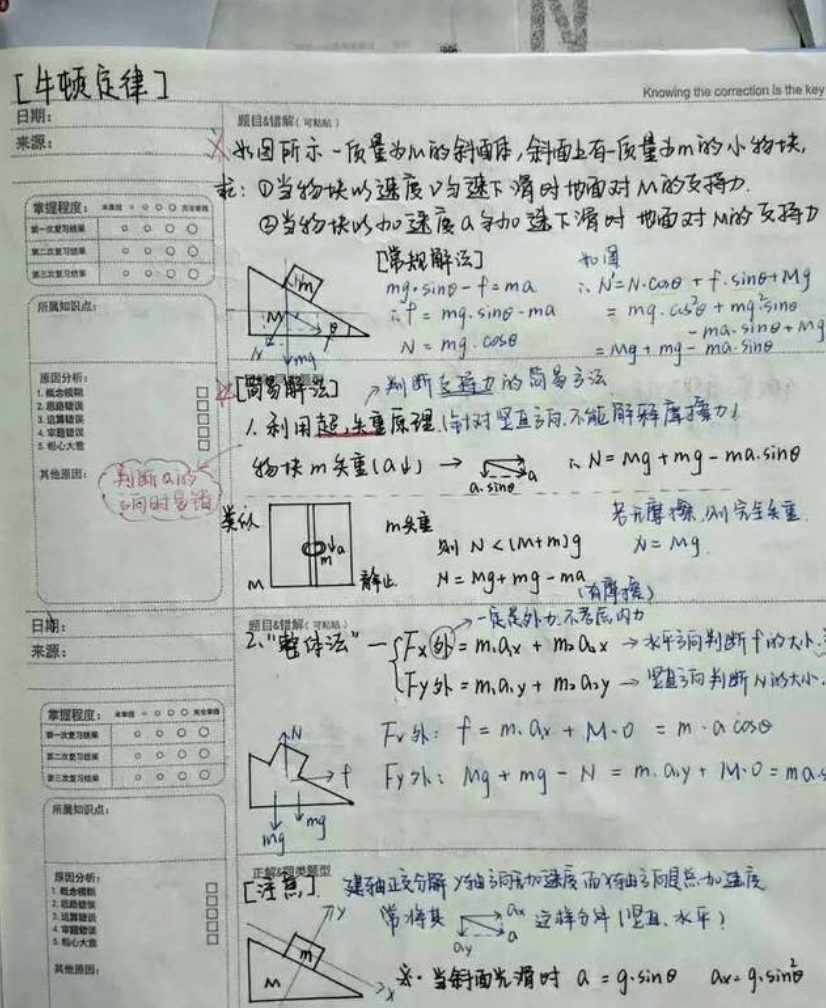 [牛顿定律]
Knowing the correction is the key
日期:
来源:
题目&错解(可粘贴)
如图所示一质量为M的斜面体,斜面上有一质量为m的小物块,
求:①当物块以速度v匀速下滑时地面对M的支持力.
②当物块以加速度a匀加速下滑时 地面对M的支持力
掌握程度: 未掌握 完全掌握
第一次复习结果
第二次复习结果
第三次复习结果
所属知识点:
原因分析:
1. 概念模糊
2. 思路错误
3. 运算错误
4. 审题错误
5. 粗心大意
其他原因:
判断a的
方向时易错
m
M
θ
N
mg
[常规解法]
mg·sinθ-f=ma
∴f=mg·sinθ-ma
N=mg·cosθ
如图
∴N'=N·cosθ+f·sinθ+Mg
=mg·cos²θ+mg²sinθ
-ma·sinθ+Mg
=Mg+mg-ma·sinθ
[简易解法] 判断支持力的简易方法
1.利用超,失重原理.(针对竖直方向.不能解释摩擦力!
物块m失重(a↓) → a a.sinθ ∴N=Mg+mg-ma.sinθ
类似
M
m
↓a
静止
m失重
则 N<(M+m)g
N=Mg+mg-ma
(有摩擦)
若无摩擦,则完全失重
N=Mg.
日期:
来源:
题目&错解(可粘贴)
一定是外力.不考虑内力
2."整体法"—{Fx外=m₁a₁x+m₂a₂x→水平方向判断f的大小.
Fy外=m₁a₁y+m₂a₂y→竖直方向判断N的大小.
掌握程度: 未掌握 完全掌握
第一次复习结果
第二次复习结果
第三次复习结果
所属知识点:
原因分析:
1. 概念模糊
2. 思路错误
3. 运算错误
4. 审题错误
5. 粗心大意
其他原因:
N
f
Mg
mg
Fx外: f=m.ax+M·0=m·a cosθ
Fy外: Mg+mg-N=m.ay+M·0=ma.s
正解&同类题型
[注意] 建轴正交分解
常将其 ax a ay 这样分解(竖直、水平)
y
m
M
x
※·当斜面光滑时 a=g·sinθ ax=g.sin²θ